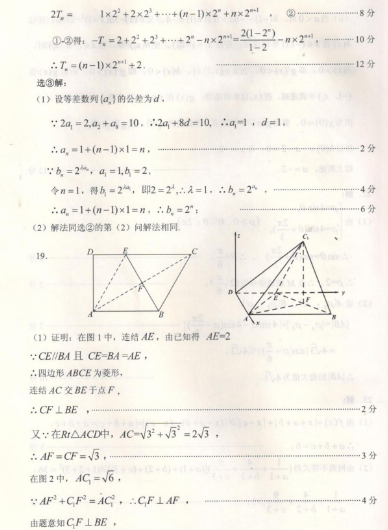 2Tₙ = 1×2²+2×2³+⋯+(n−1)×2ⁿ+n×2ⁿ⁺¹ , ② ————8分
①-②得：−Tₙ=2+2²+2³+⋯+2ⁿ−n×2ⁿ⁺¹=2(1−2ⁿ)/(1−2)−n×2ⁿ⁺¹. ————10分
∴Tₙ=(n−1)×2ⁿ⁺¹+2. ————12分
选③解：
（1）设等差数列{aₙ}的公差为d、
∵2a₁=2,a₂+a₈=10，∴2a₁+8d=10, ∴a₁=1，d=1,
∴aₙ=1+(n−1)×1=n, ————2分
∵bₙ=2^(λaₙ)，a₁=1,b₁=2.
令n=1，得b₁=2^(λa₁)，即2=2^λ,∴λ=1，∴bₙ=2^(aₙ)， ————4分
∴aₙ=1+(n−1)×1=n，∴bₙ=2ⁿ; ————6分
（2）解法同选②的第（2）问解法相同.
19.
D E C
F
A B
z
C₁
D
E
F
y
A
x
B
（1）证明：在图1中，连结AE，由已知得 AE=2
∵CE//BA 且 CE=BA=AE，
∴四边形ABCE为菱形，
连结AC交BE于点F，
∴CF⊥BE ，————2分
又∵在Rt△ACD中，AC=√(3²+√3²)=2√3，
∴AF=CF=√3， ————3分
在图2中，AC₁=√6，
∵AF²+C₁F²=AC₁²，∴C₁F⊥AF ， ————4分
由题意知C₁F⊥BE ，